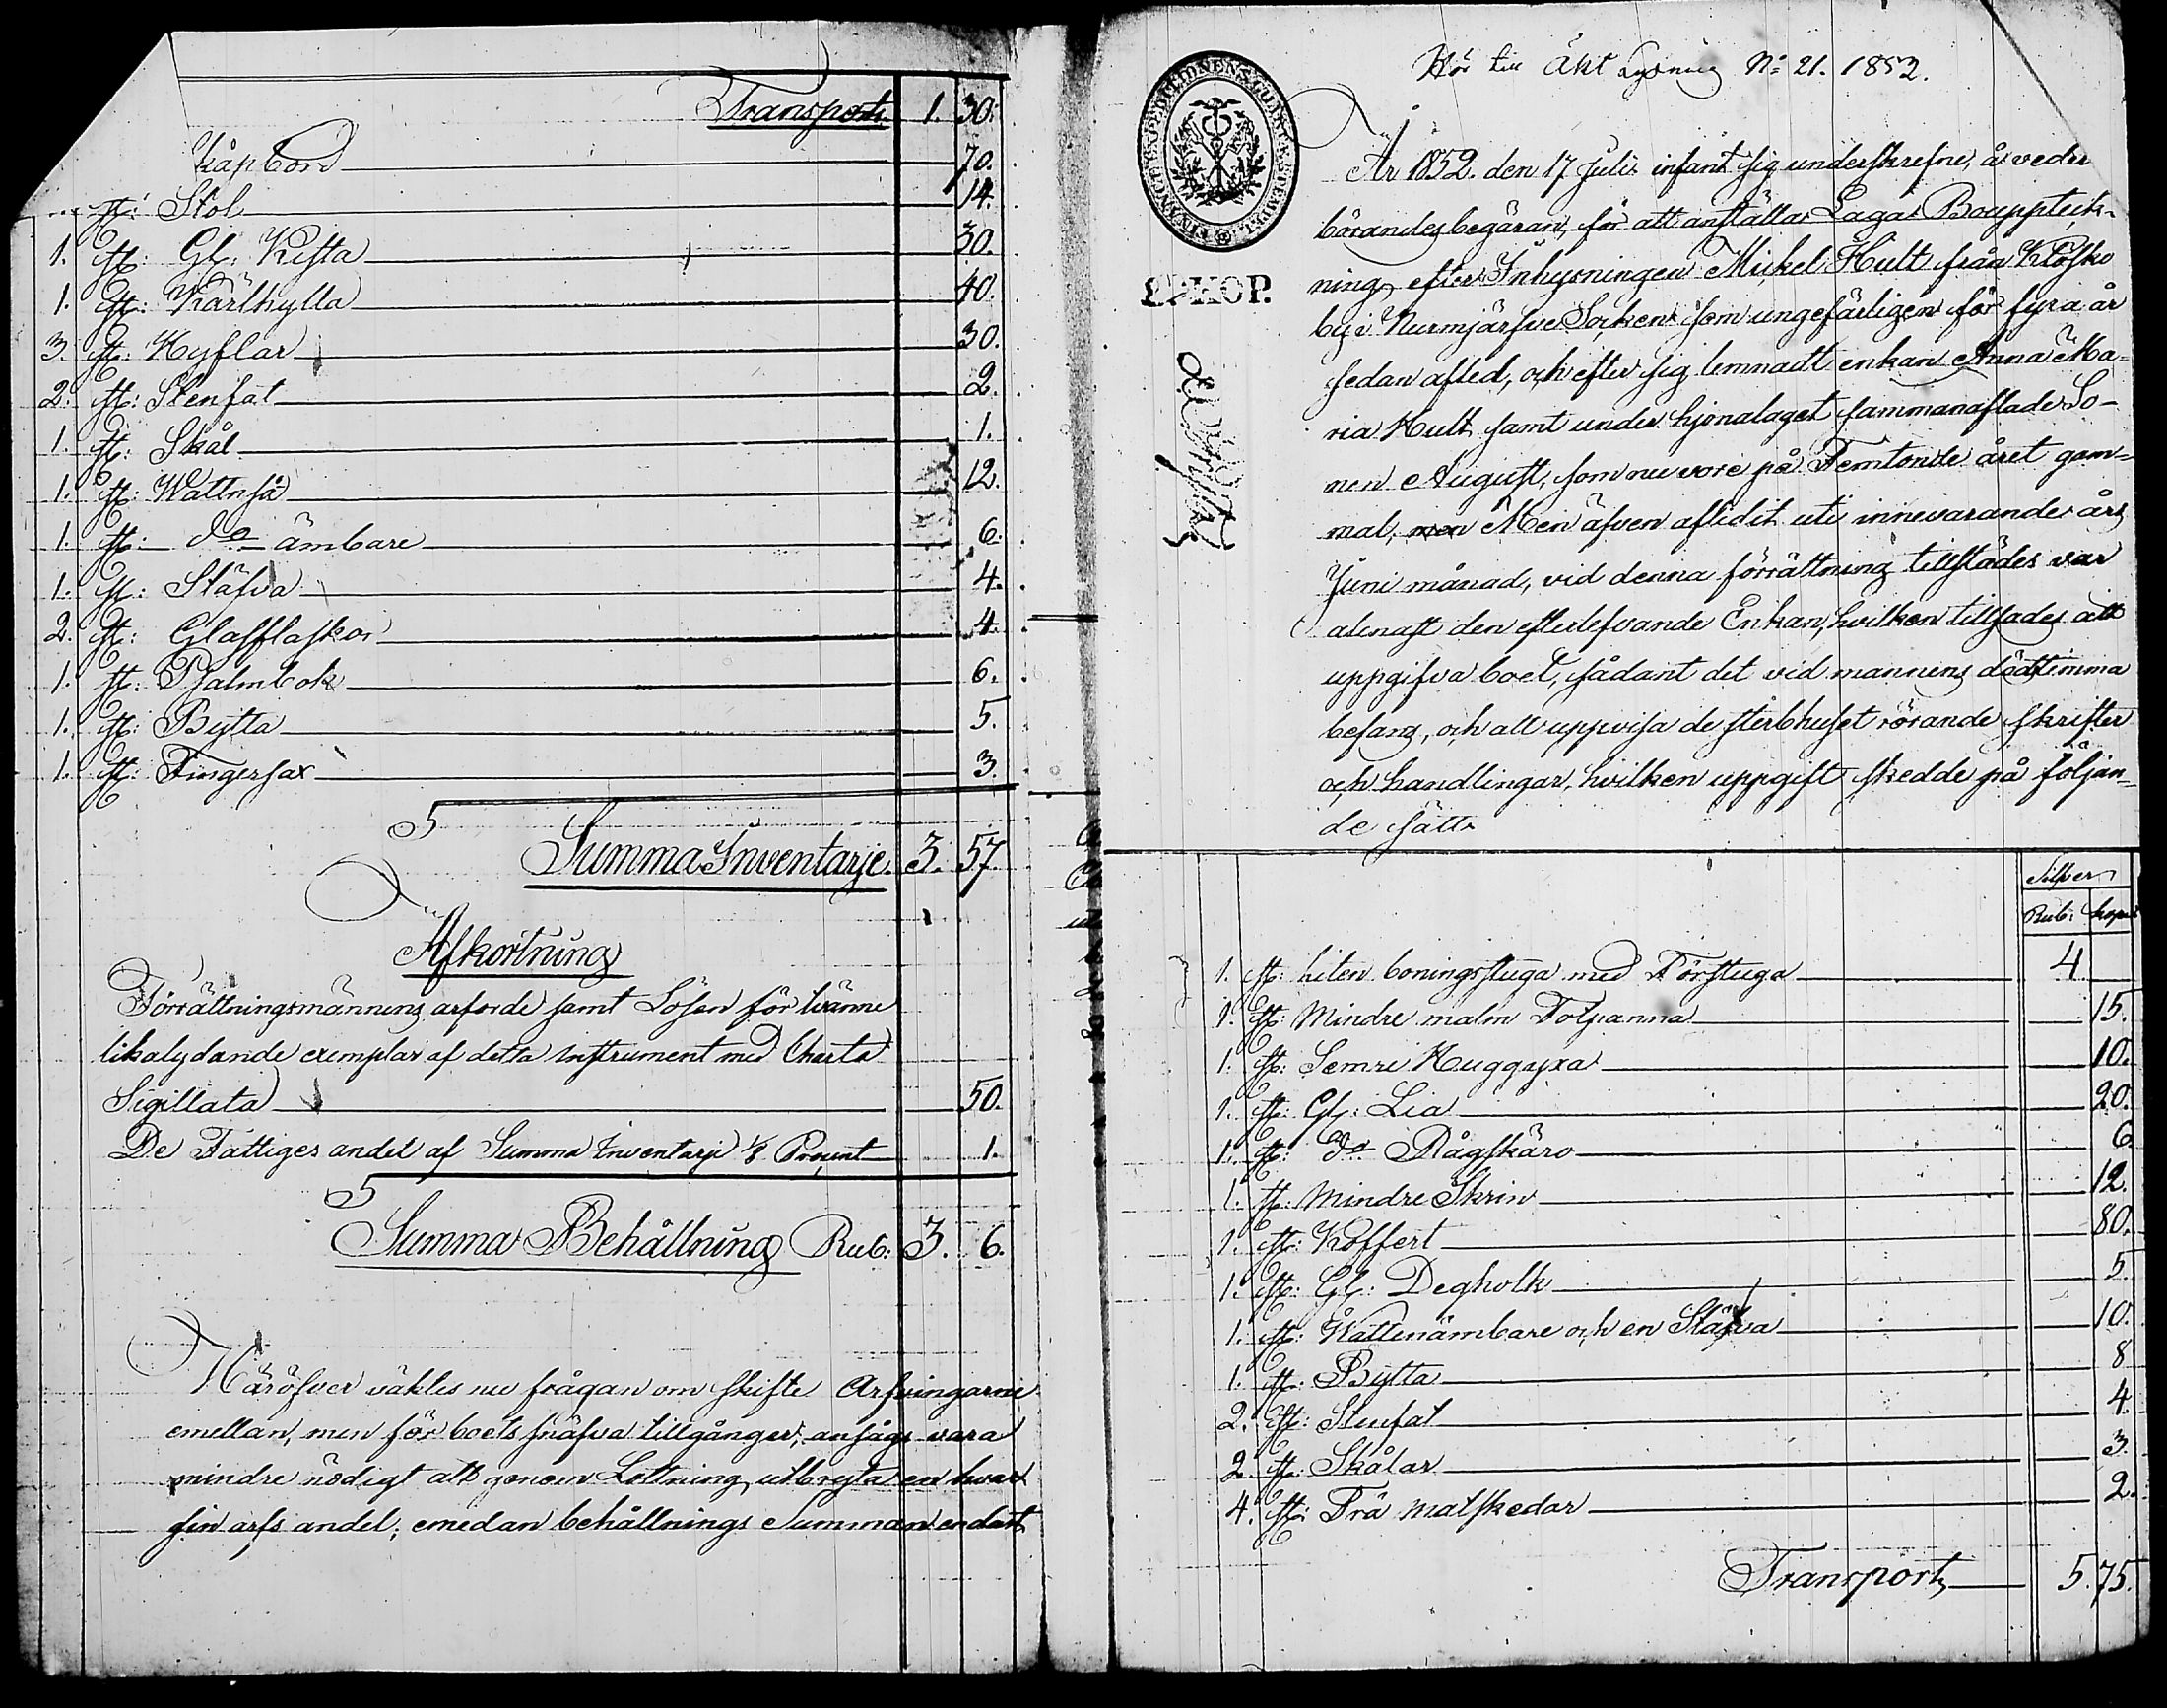 Transport. 1. 30.
Skåp bord 70.
st: Stol 14.
1. st: Gl: Kista 30.
1. st: Kärlhylla 40.
3. st: Hyflar 30.
2. st: Stenfat 2.
1. st: Skål 1.
1. st: Wattnså 12.
1. st: do ämbare 6.
1. st: Stäfva 4.
2. st: Glasflaskor 4.
1. st: Psalmbok 6.
1. st: Bytta 5.
1. st: Fingersax 3.
Summa Inventarje. 3. 57.
Afkortning
Förrättningsmännens arfvode samt Lösen för tvänne
likalydande exemplar af detta instrument med Charta
Sigillata 50.
De Fattiges andel af Summa Inventarje 1/8 Procent 1.
Summa Behållning Rub: 3. 6.
Häröfver väktes nu frågan om skifte Arfvingarne
emellan, men för boets snäfva tillgångar, ansågs vara
mindre nödigt att genom Lottning utbryta en hvar
sin arfs andel; emedan behållnings Summan endast
Hör till Äkt Lysning No 21. 1852.
FINANCE EXPEDITIONENS GUMTASTEMPEL
KOP.
År 1852. den 17 Julii infant sig underskrefne, å veder
börandes begäran, för att anställa Laga Boupptek-
ning efter Inhysningen Mickel Hult från Klöfsko
by i Nurmjärfve Socken som ungefärligen för fyra år
sedan afled, och efter sig lemnadt enkan Anna Ma-
ria Hult samt under hjonalaget sammanaflade So-
nen August, som nu vore på Femtonde året gam-
mal, men Men äfven aflidit uti innevarande års
Juni månad, vid denna förrättning tillstädes var
alenast den efterlefvande Enkan, hvilken tillsades att
uppgifva boet, sådant det vid mannens dödstimma
befans, och att uppvisa de sterbhuset rörande skrifter
och handlingar, hvilken uppgift skedde på följan-
de sätt
Silfver
Rub: kop:
1. st: liten boningsstuga med Förstuga 4
1. st: Mindre malm Fotpanna 15.
1. st: Semre Huggyxa 10.
1. st: Gl: Lia 20.
1. st: do Rågskäro 6.
1. st: Mindre Skrin 12.
1. st: Koffert 80.
1. st: Gl: Degholk 5
1. st: Wattenämbare och en Stäfva 10.
1. st: Bytta 8
2. st: Stenfat 4.
2. st: Skålar 3.
4. st: Trä matskedar 2.
Transport 5. 75.